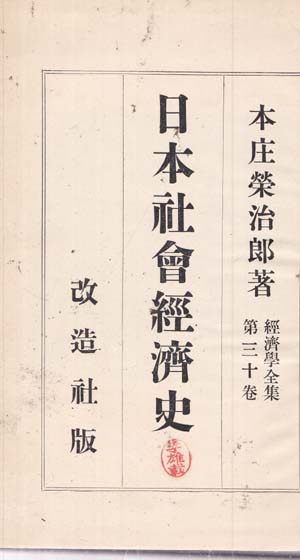 本庄榮治郎著
經濟學全集
第三十卷
日本社會經濟史
改造社版